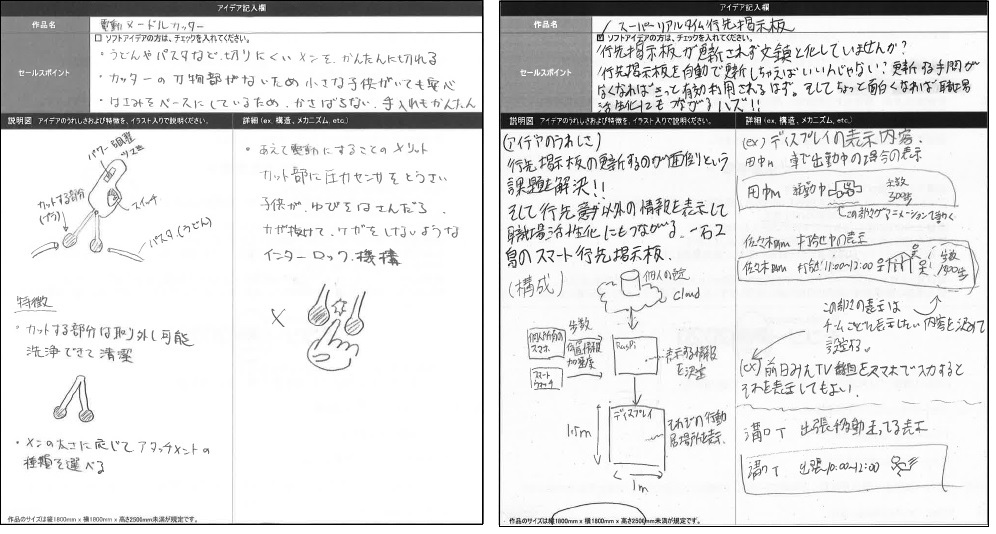 アイデア記入欄
作品名
電動ヌードルカッター
ソフトアイデアの方は、チェックを入れてください。
セールスポイント
・うどんやパスタなど、切りにくいメンを、かんたんに切れる
・カッターの刃物部がないため小さな子供がいても安心
・はさみをベースにしているため、かさばらない、手入れもかんたん
説明図 アイデアのうれしさおよび特徴を、イラスト入りで説明ください。
詳細(ex. 構造、メカニズム、etc.)
パワー装置
カットする部分
スイッチ
パスタ(うどん)
特徴
・カットする部分は取り外し可能
洗浄できて清潔
・メンの太さに応じてアタッチメントの
種類を選べる
・あえて電動にすることのメリット
カット部に圧力センサをとうさい
子供が、ゆびをはさんだら、
力が抜けて、ケガをしないような
インターロック機構
作品のサイズは縦1800mm x 横1800mm x 高さ2500mm未満が規定です。
アイデア記入欄
作品名
スーパーリアルタイム行先掲示板
ソフトアイデアの方は、チェックを入れてください。
セールスポイント
行先掲示板が更新されず文鎮と化していませんか?
行先掲示板を自動で更新しちゃえばいいんじゃない?更新する手間が
なくなればきっと有効利用されるはず。そしてちょっと面白くなれば職場
活性化にもつながるハズ!!
説明図 アイデアのうれしさおよび特徴を、イラスト入りで説明ください。
詳細(ex. 構造、メカニズム、etc.)
(アイデアのうれしさ)
行先掲示板の更新するのが面倒という
課題を解決!!
そして行先以外の情報を表示して
職場活性化にもつながる、一石2
鳥のスマート行先掲示板.
(構成)
Cloud
個人所有の
スマホ
スマート
ウォッチ
歩数
位置情報
加速度
RasPi
表示する情報
を決定
ディスプレイ
それぞれの行動
居場所を表示.
1.5m
1m
(ex)ディスプレイの表示内容.
田中m 車で出勤中の場合の表示
田中m 出勤中
歩数
300歩
この部分がアニメーションで動く
佐々木mm 打合せ中の表示
佐々木mm 打合せ 11:00~12:00
歩数
1900歩
この部分の表示は
チームごとに表示したい内容を決めて
設定する。
(ex)前日みたTV番組をスマホで入力すると
それを表示してもよい.
溝口T 出張移動 走ってる表示
溝口T 出張10:00~12:00
作品のサイズは縦1800mm x 横1800mm x 高さ2500mm未満が規定です。